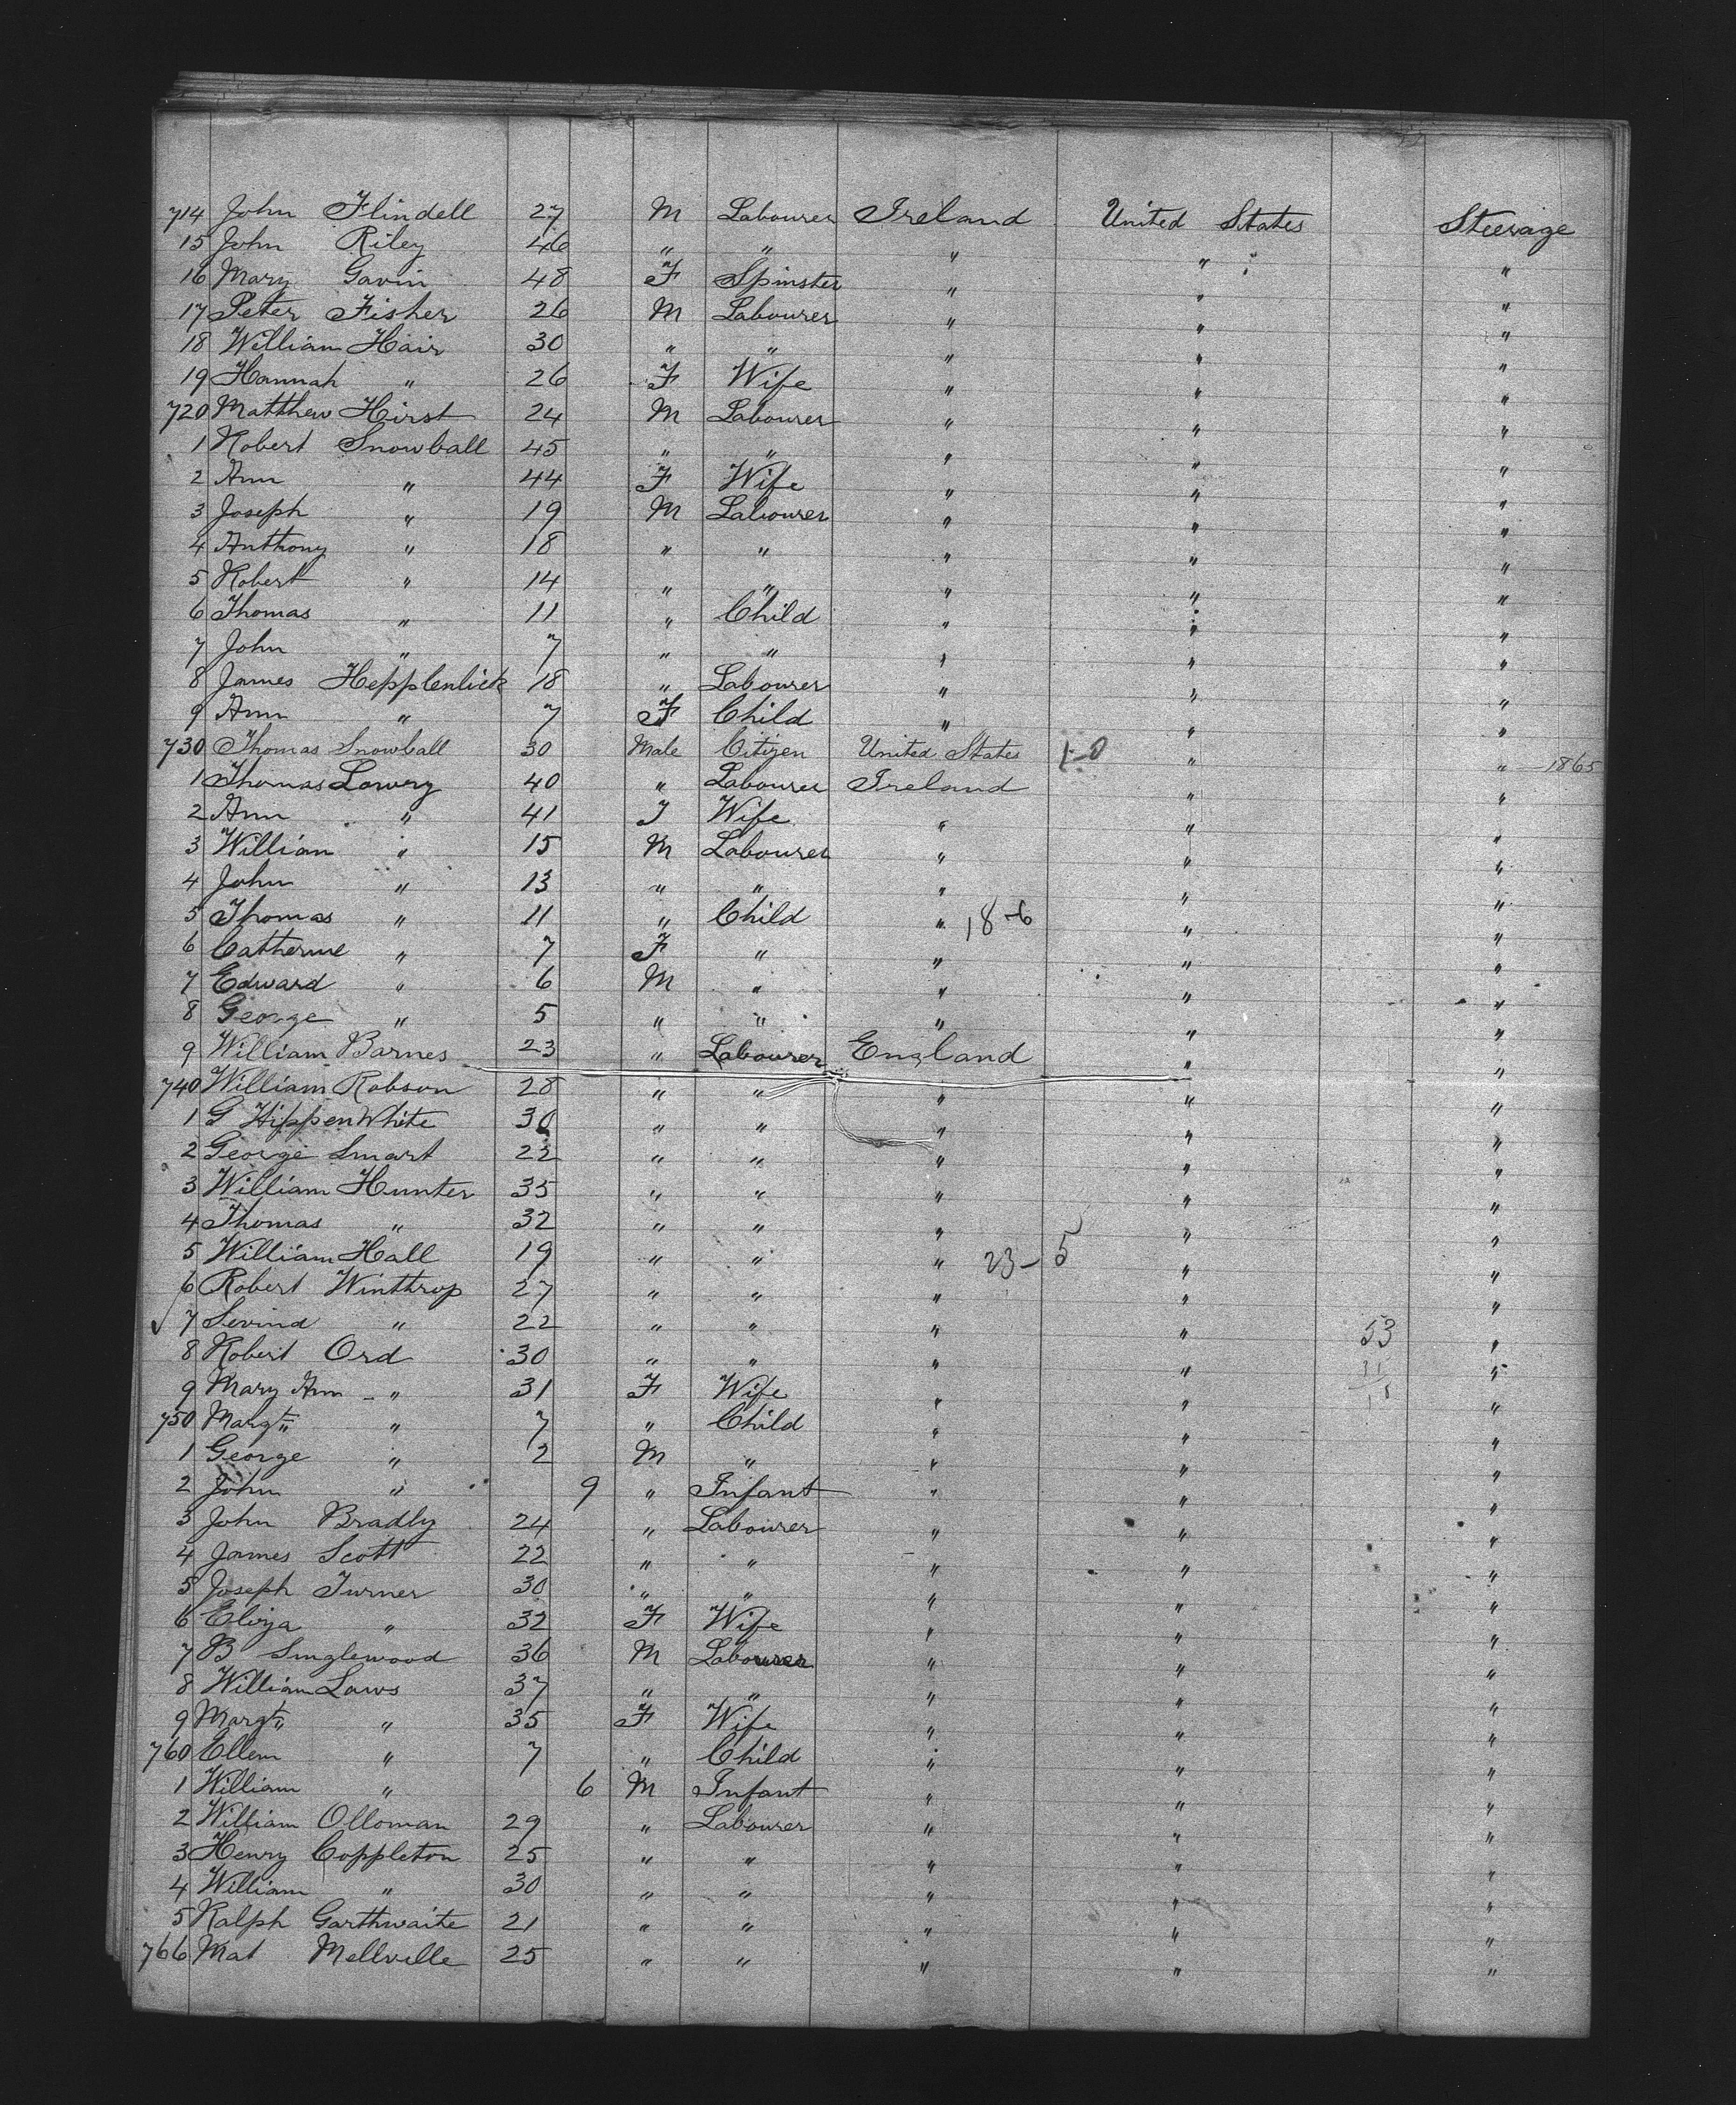 714 John Flindell 27 M Labourer Ireland United States Steerage
15 John Riley 46 " " " " "
16 Mary Gavin 48 F Spinster " " "
17 Peter Fisher 26 M Labourer " " "
18 William Hair 30 " " " " "
19 Hannah " 26 F Wife " " "
720 Matthew Hirst 24 M Labourer " " "
1 Robert Snowball 45 " " " " "
2 Ann " 44 F Wife " " "
3 Joseph " 19 M Labourer " " "
4 Anthony " 18 " " " " "
5 Robert " 14 " " " " "
6 Thomas " 11 " Child " " "
7 John " 7 " " " " "
8 James Hepplenlick 18 " Labourer " " "
9 Ann " 7 F Child " " "
730 Thomas Snowball 30 Male Citizen United States 1-0 " " 1865
1 Thomas Lowery 40 " Labourer Ireland " "
2 Ann " 41 F Wife " " "
3 William " 15 M Labourer " " "
4 John " 13 " " " " "
5 Thomas " 11 " Child " 18-6 " "
6 Catherine " 7 F " " " "
7 Edward " 6 M " " " "
8 George " 5 " " " " "
9 William Barnes 23 " Labourer England " "
740 William Robson 28 " " " " "
1 G HippenWhite 30 " " " " "
2 George Smart 22 " " " " "
3 William Hunter 35 " " " " "
4 Thomas " 32 " " " " "
5 William Hall 19 " " " 23-5 " "
6 Robert Winthrop 27 " " " " "
7 Sevind " 22 " " " " 53 "
8 Robert Ord 30 " " " " "
9 Mary Ann " 31 F Wife " " "
750 Margt " 7 " Child " " "
1 George " 2 M " " " "
2 John " 9 " Infant " " "
3 John Bradly 24 " Labourer " " "
4 James Scott 22 " " " " "
5 Joseph Turner 30 " " " " "
6 Eliza " 32 F Wife " " "
7 B Singlewood 36 M Labourer " " "
8 William Laws 37 " " " " "
9 Margt " 35 F Wife " " "
760 Ellen " 7 " Child " " "
1 William " 6 M Infant " " "
2 William Olloman 29 " Labourer " " "
3 Henry Coppleton 25 " " " " "
4 William " 30 " " " " "
5 Ralph Garthwaite 21 " " " " "
766 Mat Mellville 25 " " " " "